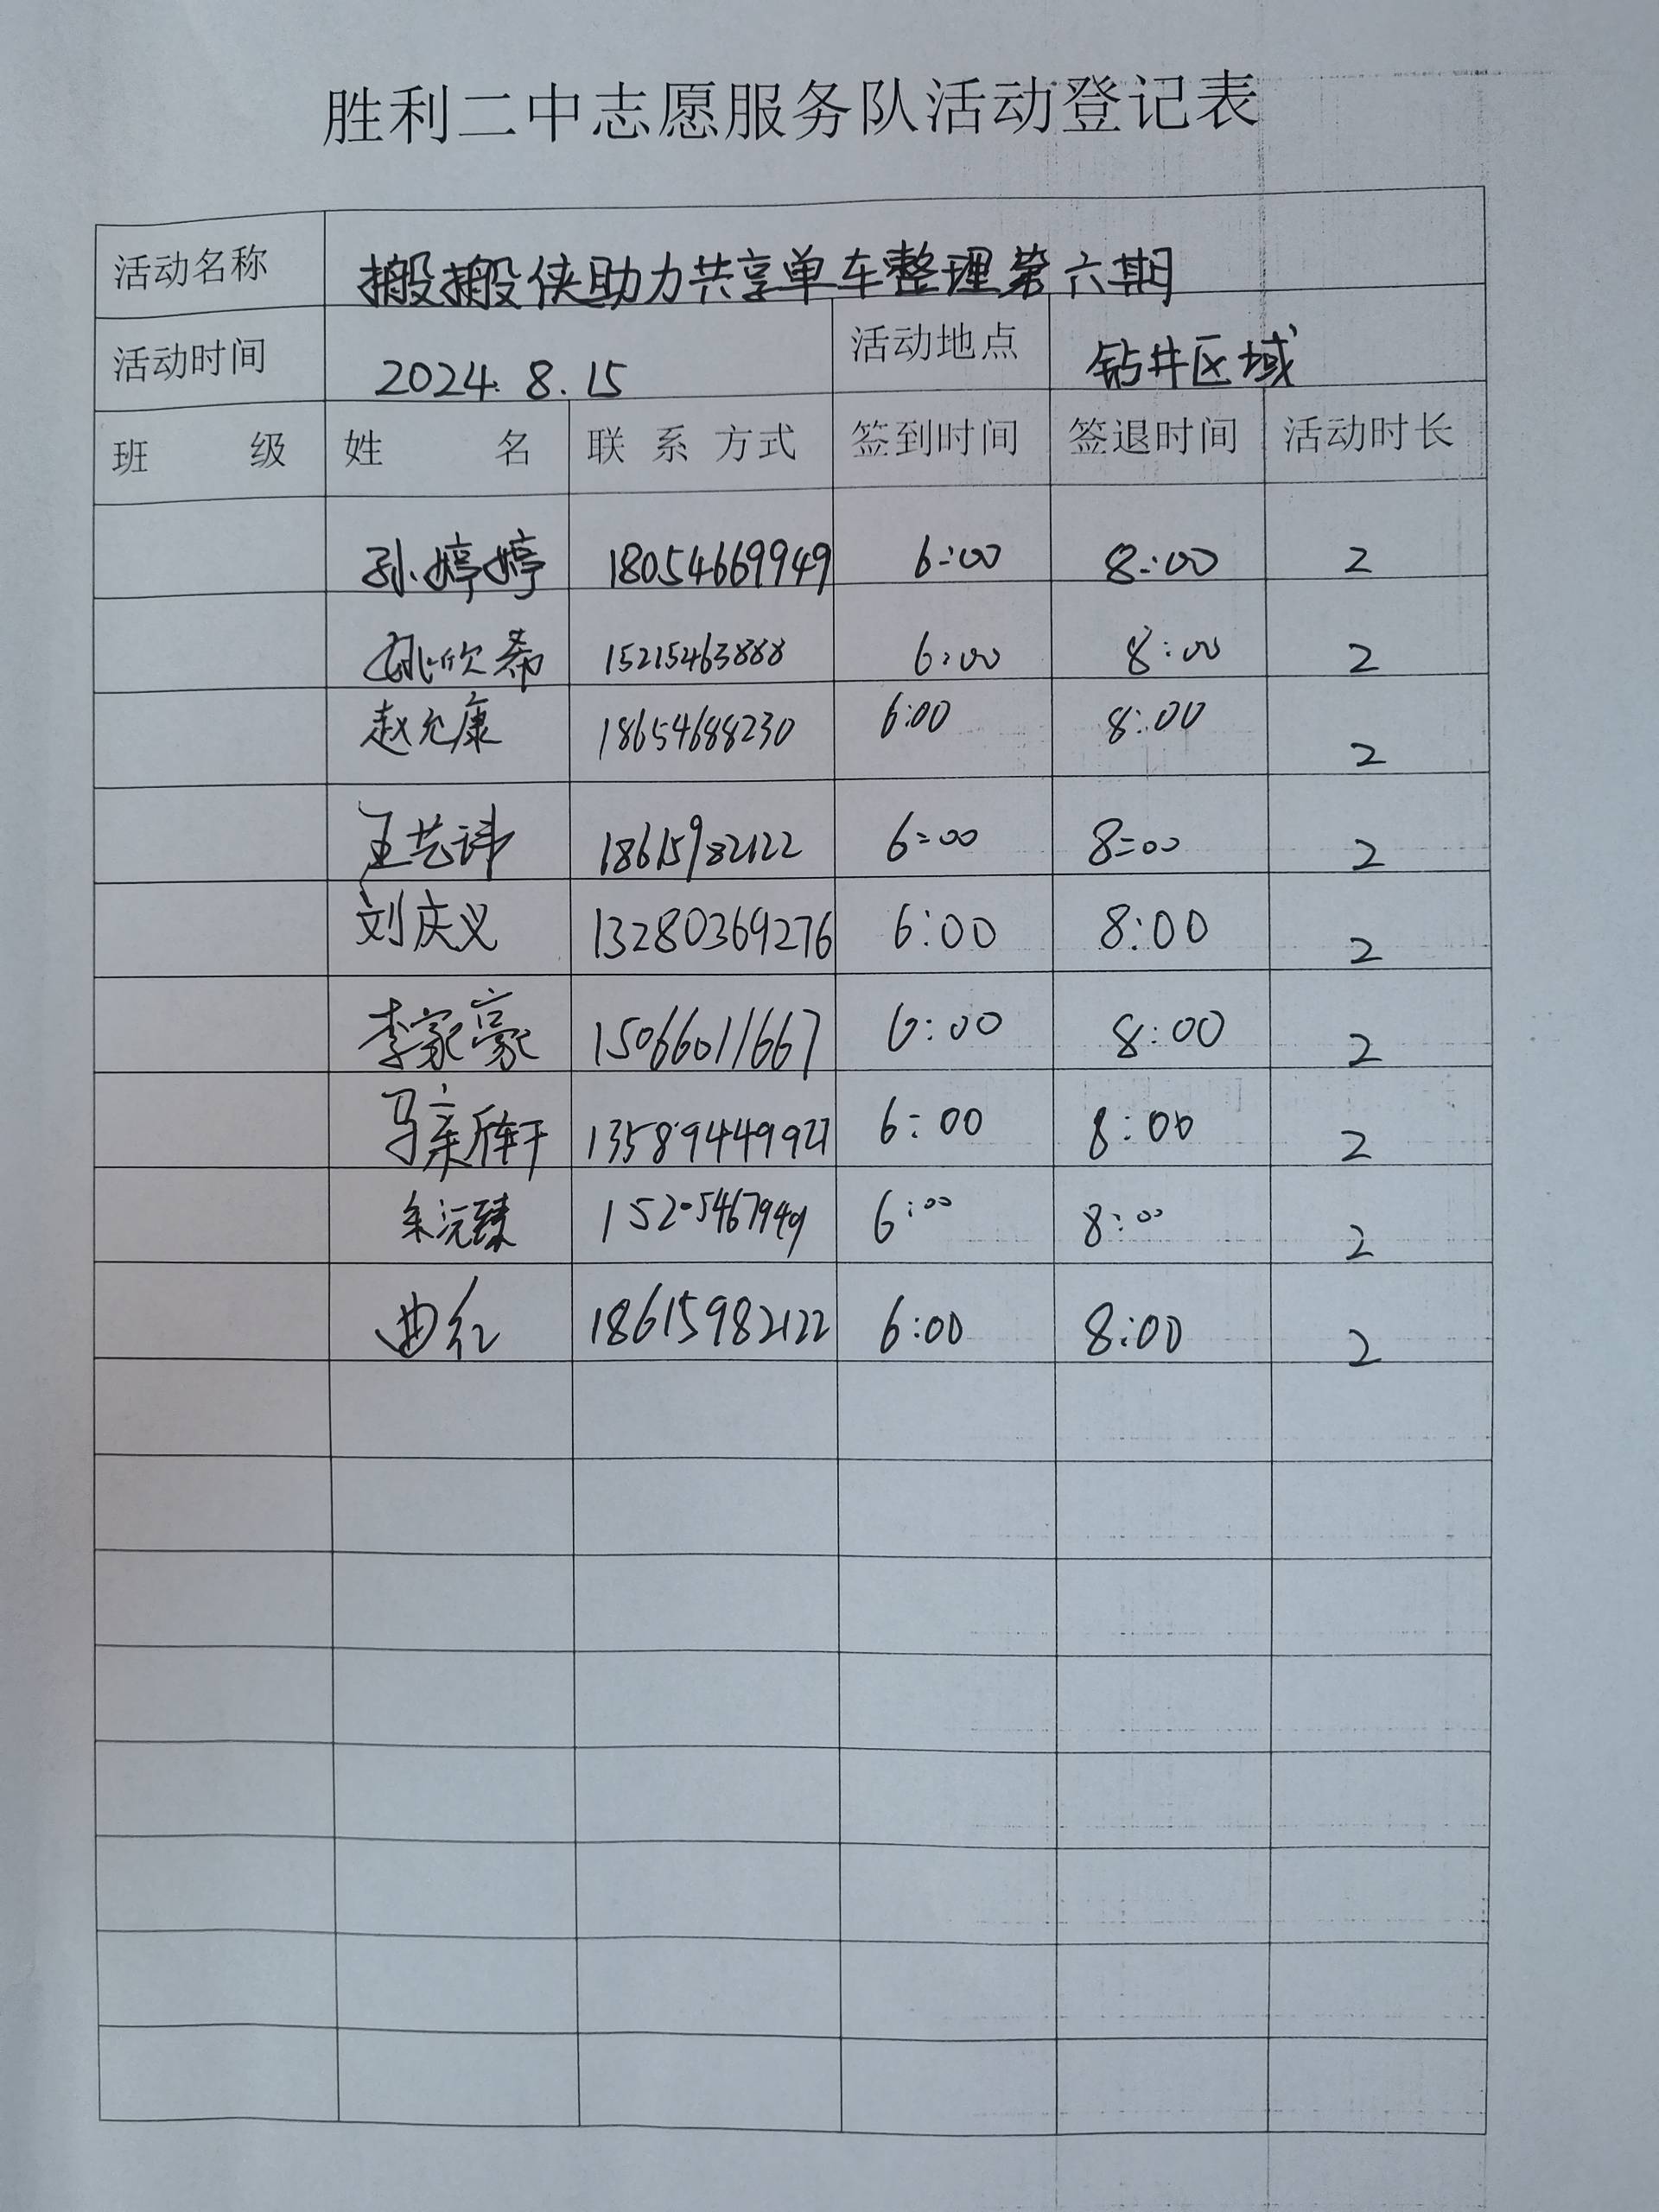 胜利二中志愿服务队活动登记表
活动名称 搬搬侠助力共享单车整理第六期
活动时间 2024.8.15 活动地点 钻井区域
班 级 姓 名 联 系 方式 签到时间 签退时间 活动时长
孙婷婷 18054669949 6:00 8:00 2
姚欣希 15215463888 6:00 8:00 2
赵允康 18654688230 6:00 8:00 2
王艺讳 18615982122 6:00 8:00 2
刘庆义 13280369276 6:00 8:00 2
李家豪 15066011667 6:00 8:00 2
马亲 13589449927 6:00 8:00 2
15205467949 6:00 8:00 2
曲红 18615982122 6:00 8:00 2